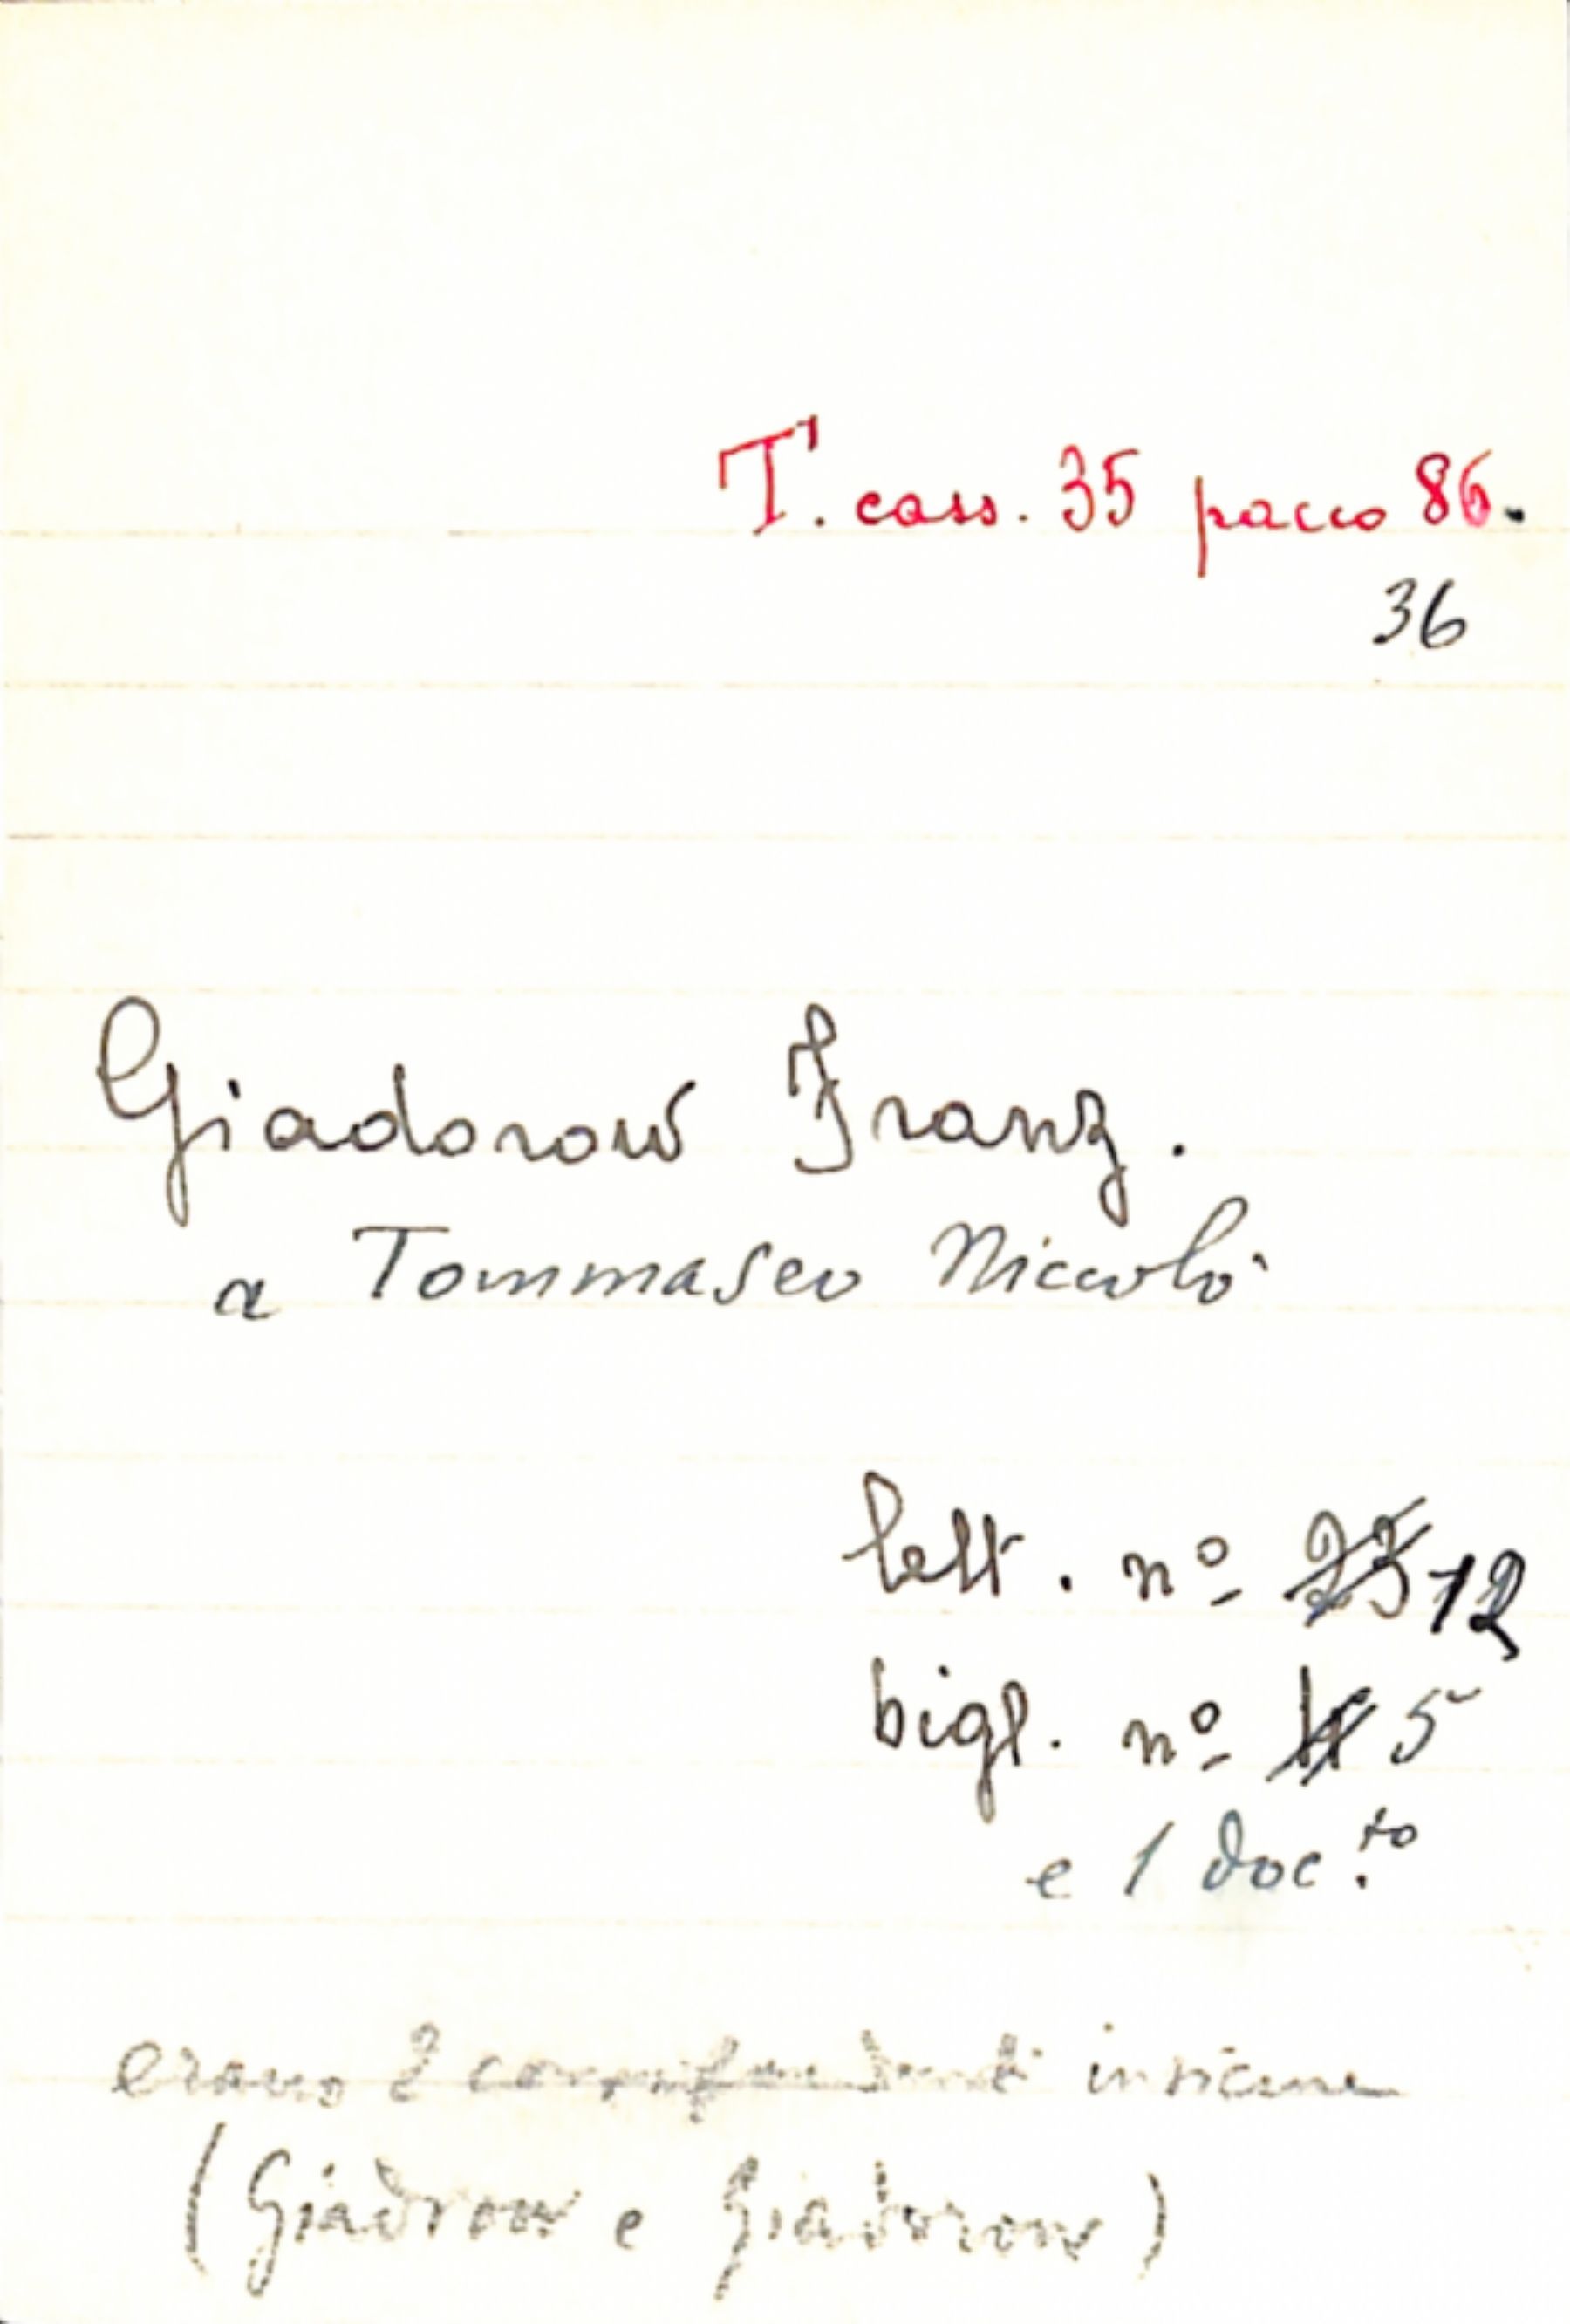 T. cass. 35 pacco 86.
36
Giadorow Franz.
a Tommaseo Niccolò
lett. nº 25 12
bigl. nº 5
e 1 doc.to
erano 2 corrispondenti insieme
(Giadrow e Giadorow)